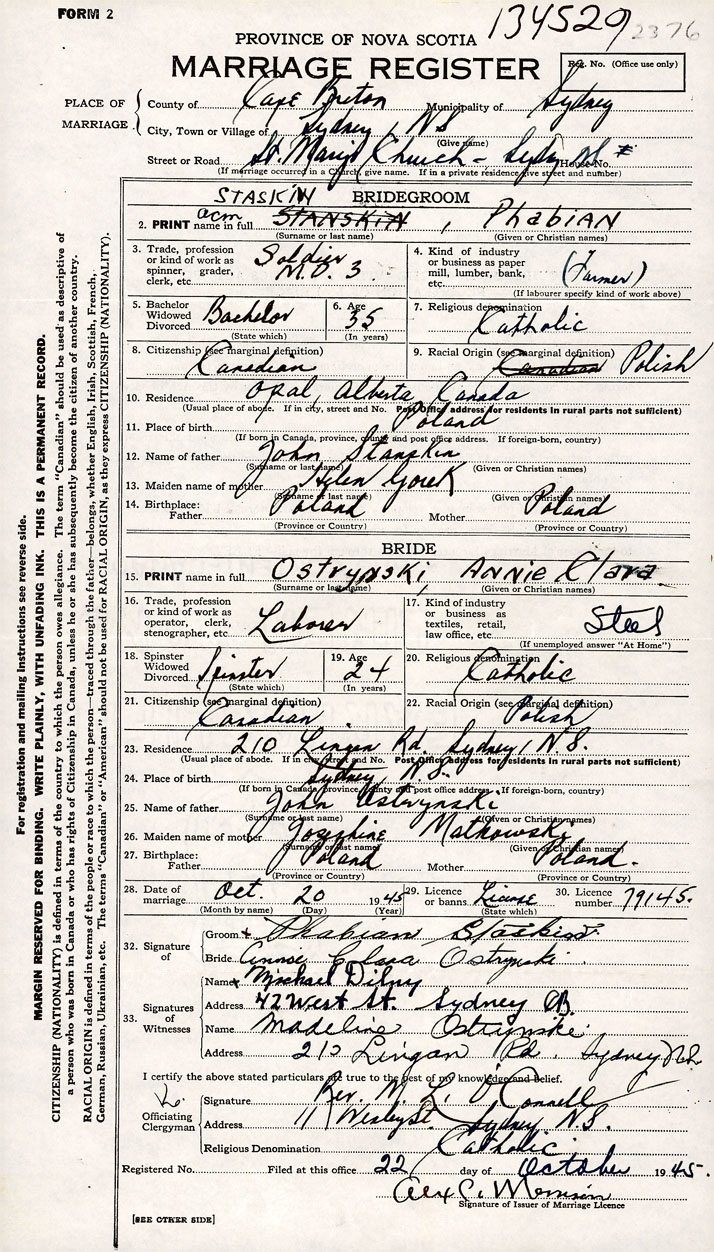 FORM 2
134529 2376
PROVINCE OF NOVA SCOTIA
MARRIAGE REGISTER
Reg. No. (Office use only)
PLACE OF MARRIAGE
County of Cape Breton Municipality of Sydney
City, Town or Village of Sydney, N S
(Give name)
Street or Road St. Mary's Church - Sydney House No.
(If marriage occurred in a Church, give name. If in a private residence give street and number)
STASKIN BRIDEGROOM
2. PRINT name in full acm STANSKIN, PhABIAN
(Surname or last name) (Given or Christian names)
3. Trade, profession or kind of work as spinner, grader, clerk, etc. Soldier M.D. 3
4. Kind of industry or business as paper mill, lumber, bank, etc. (Farmer)
(If labourer specify kind of work above)
5. Bachelor Widowed Divorced Bachelor
(State which)
6. Age 35
(In years)
7. Religious denomination Catholic
8. Citizenship (see marginal definition) Canadian
9. Racial Origin (see marginal definition) Canadian Polish
10. Residence Opal, Alberta Canada
(Usual place of abode. If in city, street and No. Post Office address for residents in rural parts not sufficient)
11. Place of birth Poland
(If born in Canada, province, county and post office address. If foreign-born, country)
12. Name of father John Stanskin
(Surname or last name) (Given or Christian names)
13. Maiden name of mother Helen Gorek
(Surname or last name) (Given or Christian names)
14. Birthplace: Father Poland Mother Poland
(Province or Country) (Province or Country)
BRIDE
15. PRINT name in full Ostrynski, Annie Clara
(Surname or last name) (Given or Christian names)
16. Trade, profession or kind of work as operator, clerk, stenographer, etc. Laborer
17. Kind of industry or business as textiles, retail, law office, etc. Steel
(If unemployed answer "At Home")
18. Spinster Widowed Divorced Spinster
(State which)
19. Age 24
(In years)
20. Religious denomination Catholic
21. Citizenship (see marginal definition) Canadian
22. Racial Origin (see marginal definition) Polish
23. Residence 210 Lingan Rd. Sydney, N.S.
(Usual place of abode. If in city street and No. Post Office address for residents in rural parts not sufficient)
24. Place of birth Sydney, N.S.
(If born in Canada, province, county and post office address. If foreign-born, country)
25. Name of father John Ostrynski
(Surname or last name) (Given or Christian names)
26. Maiden name of mother Josephine Matkowski
(Surname or last name) (Given or Christian names)
27. Birthplace: Father Poland Mother Poland.
(Province or Country) (Province or Country)
28. Date of marriage Oct. 20 1945
(Month by name) (Day) (Year)
29. Licence or banns License
(State which)
30. Licence number 79145.
32. Signature of
Groom x Phabian Staskin
Bride Annie Clara Ostrynski
33. Signatures of Witnesses
Name x Michael Dilny
Address 42 West St. Sydney
Name Madeline Ostrynski
Address 210 Lingan Rd. Sydney
I certify the above stated particulars are true to the best of my knowledge and belief.
Officiating Clergyman
Signature Rev. M. L. O'Connell
Address 11 Wesley St Sydney N.S.
Religious Denomination Catholic
Registered No. Filed at this office 22 day of October 1945.
Alex C. Morrison
Signature of Issuer of Marriage Licence
[SEE OTHER SIDE]
For registration and mailing instructions see reverse side.
MARGIN RESERVED FOR BINDING. WRITE PLAINLY, WITH UNFADING INK. THIS IS A PERMANENT RECORD.
CITIZENSHIP (NATIONALITY) is defined in terms of the country to which the person owes allegiance. The term "Canadian" should be used as descriptive of
a person who was born in Canada or who has rights of Citizenship in Canada, unless he or she has subsequently become the citizen of another country.
RACIAL ORIGIN is defined in terms of the people or race to which the person—traced through the father—belongs, whether English, Irish, Scottish, French,
German, Russian, Ukrainian, etc. The terms "Canadian" or "American" should not be used for RACIAL ORIGIN, as they express CITIZENSHIP (NATIONALITY).